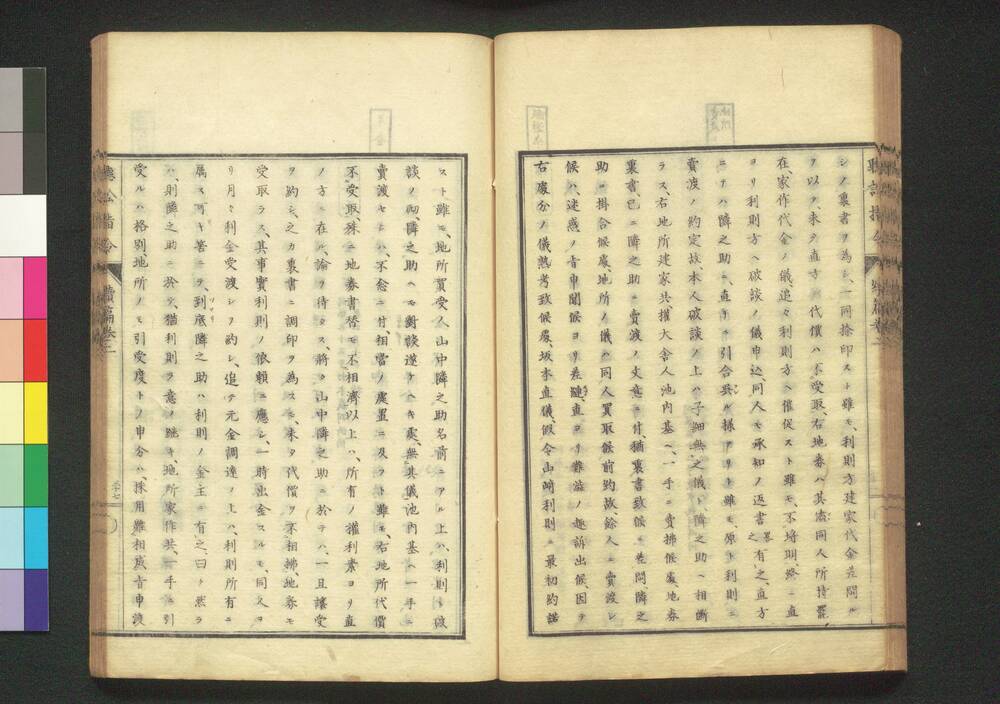 シノ裏書ヲ為シ、一同捺印スト雖モ、利則方建家代金差問ル
ヲ以テ、未タ直方ヘ代價ハ不受取、右地券ハ其儘同人所持罷
在、家作代金ノ儀、追々利則方ヘ催促スト雖モ、不埒明、終ニ直
ヨリ利則方ヘ破談ノ儀申込、同人モ承知ノ返書有之、直方
ニテハ隣之助ニ直チニ引合具ル様アリト雖モ、原ト利則ニ
賣渡ノ約定故、本人破談ノ上ハ子細無之儀ト、隣之助ヘ相断
ラス、右地所建家共、擢大舎人池内基ヘ、一手ニ賣拂候處、地券
裏書、已ニ隣之助ニ賣渡ノ文意ニ付、猶裏書致候ニ差問、隣之
助ニ掛合候處、地所ノ儀ハ同人買取候前約故、餘人ニ賣渡シ
候ハ、迷惑ノ旨申聞候ヨリ差縺、直ヨリ難澁ノ趣訴出候因テ
右處分ノ儀熟考致候處、坂本直儀、假令山﨑利則ニ最初約諾
スト雖モ、地所買受人山中隣之助名前ニアル上ハ、利則ト破
談ノ砌、隣之助ヘモ對談遂ケヘキ處、無其儀池内基ヘ一手ニ
賣渡セシハ、不念ニ付、相當ノ處置ニ及フト雖モ、右地所代價
不受取、殊ニ地券書替モ不相濟以上ハ、所有ノ權利素ヨリ直
ノ方ニ在ル、論ヲ待タス、將タ山中隣之助ニ於テハ、一旦讓受
ヲ約シ、之カ裏書ニ調印ヲ為スモ、未タ代價ヲ不相拂、地券モ
受取ラス、其事實利則ノ依頼ニ應シ、一時出金スルモ、同人ヨ
リ月々利金受渡シヲ約シ、追テ元金調達ノ上ハ、利則所有ニ
属スヘキ筈ニヲ、到底隣之助ハ利則ノ金主ニ有之曰タ然ラ
ハ、則隣之助ニ於テ、猶利則ヲ意ノ跳キ、地所家作共、一手ニ引
受ルハ格別、地所ノミ引受度トノ申分ハ、採用難相成旨申渡